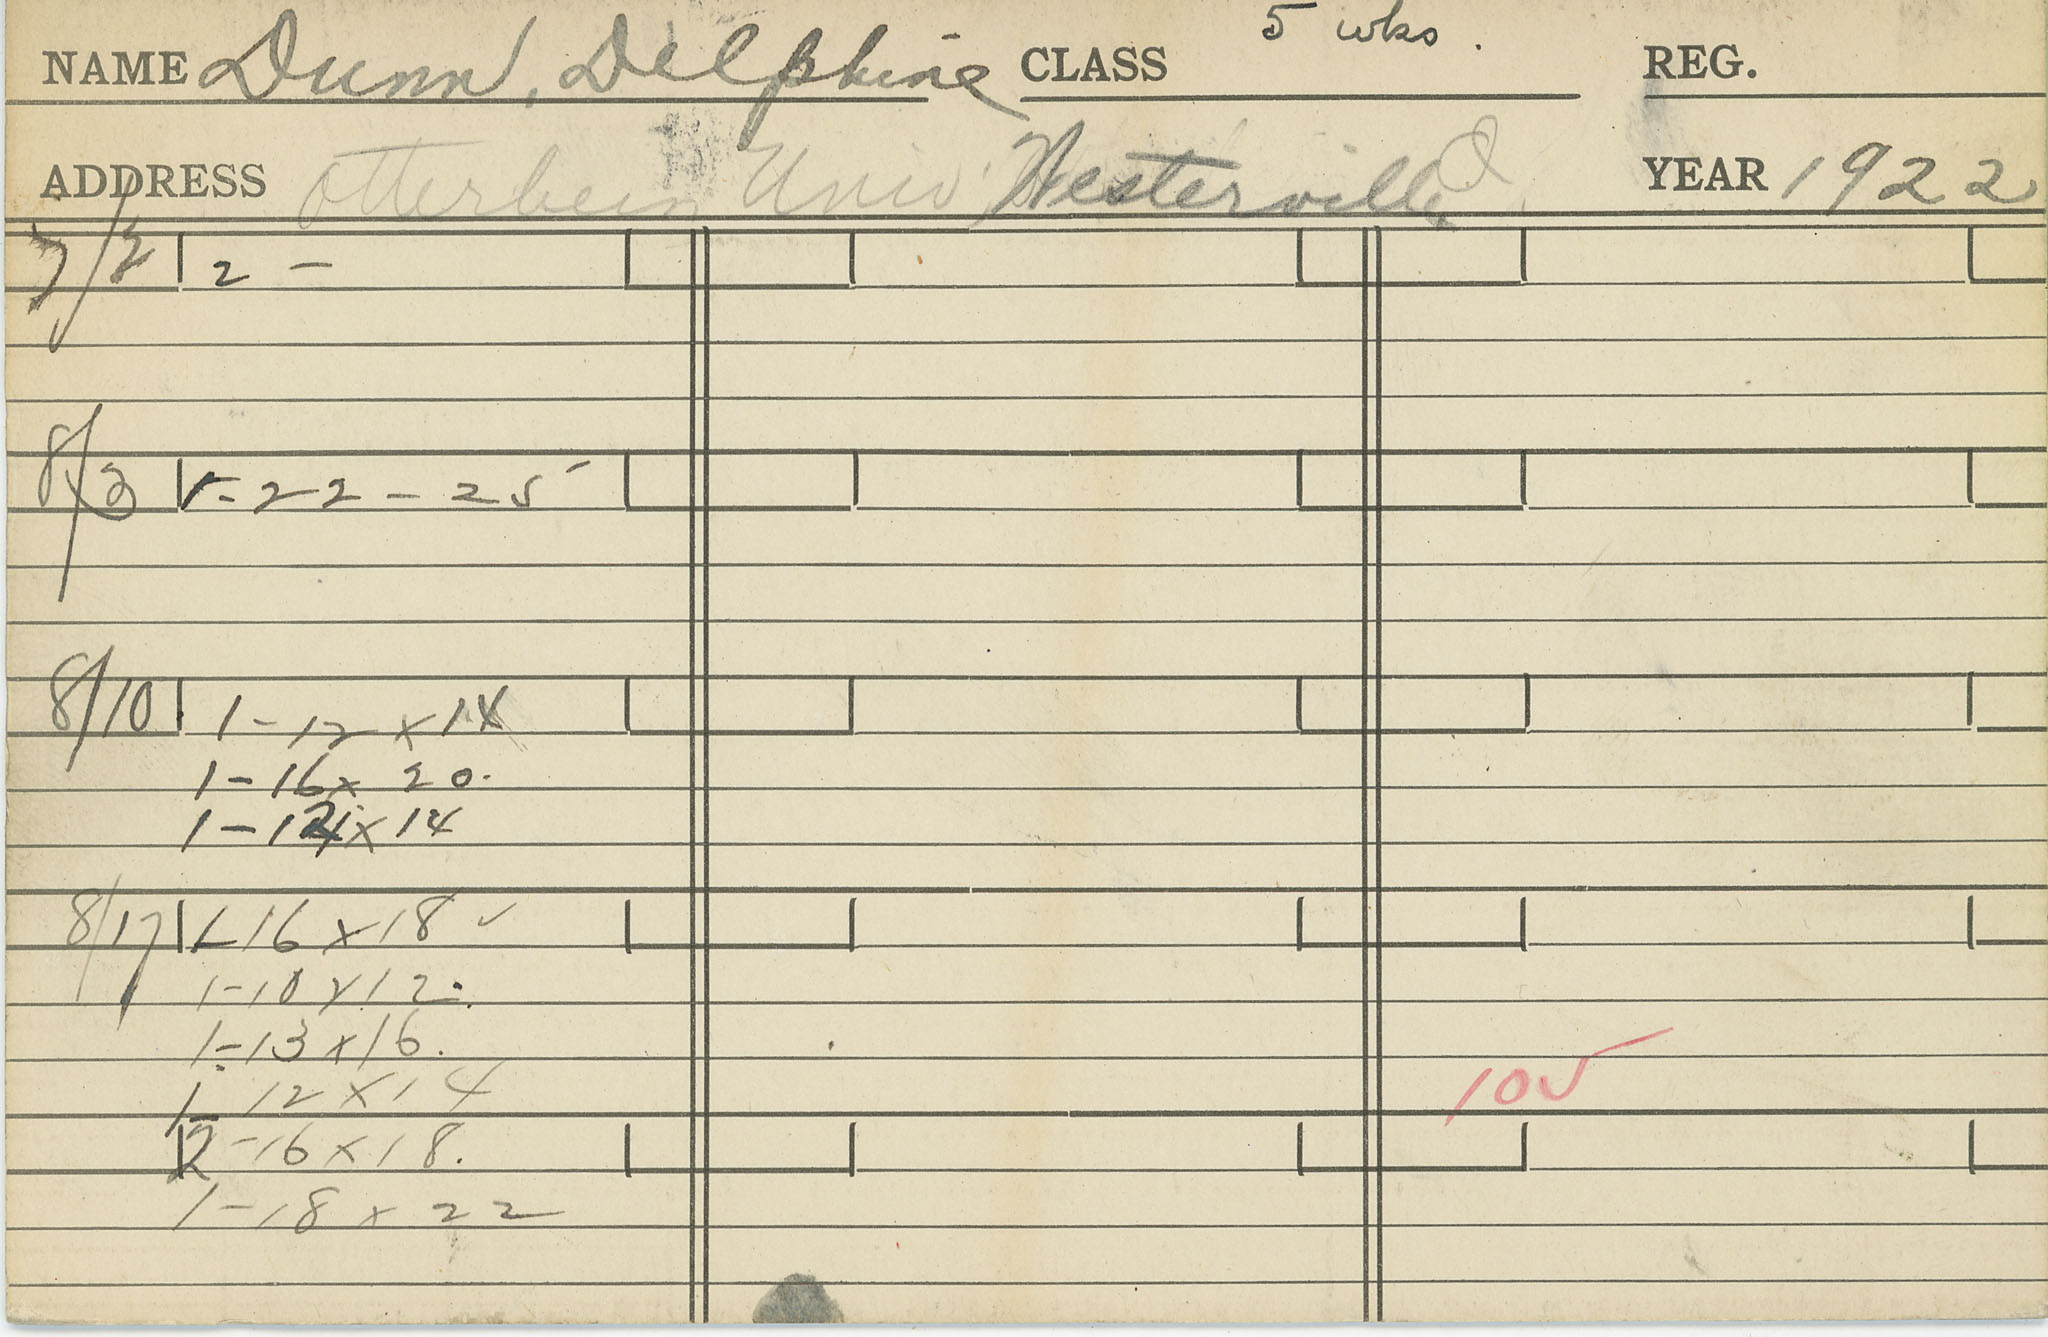 NAME Dunn, Delphine CLASS 5 wks. REG.
ADDRESS Otterbein Univ. Westerville O YEAR 1922
2 -
8/3 1-22-25
8/10 1-12x14
1-16x20.
1-12x14
8/17 1-16x18 ✓
1-10x12.
1-13x16.
1-12x14
105
2-16x18.
1-18x22